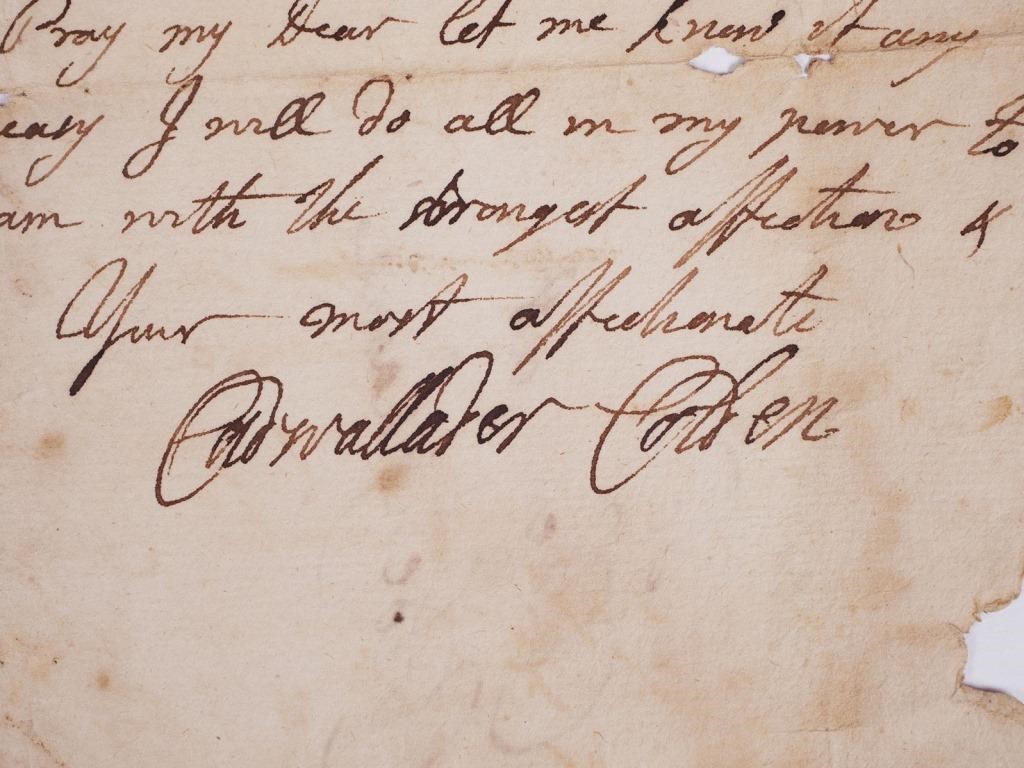 Pray my Dear let me know if any
easy I will do all in my power to
am with the strongest affection &
Your most affectionate
Cadwallader Colden